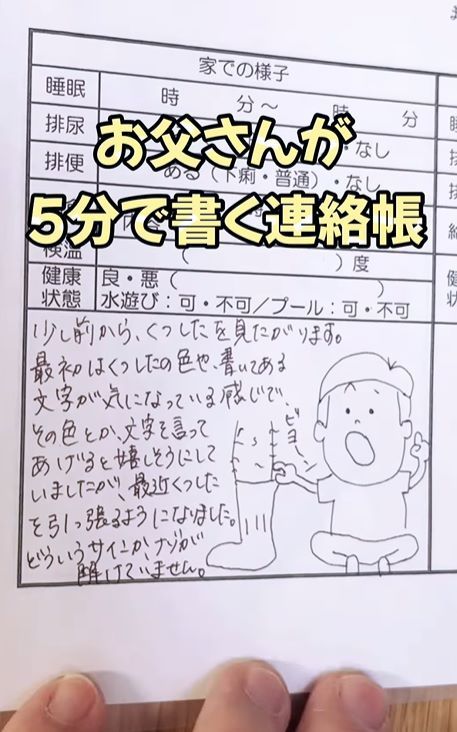 家での様子
睡眠
時 分～ 時 分
排尿
なし
お父さんが
排便
ある（下痢・普通）・なし
5分で書く連絡帳
検温
（ ）度
健康状態
良・悪（ ）
水遊び：可・不可／プール：可・不可
少し前から、くつしたを見たがります。
最初はくつしたの色や、書いてある
文字が気になっている感じで、
その色とか、文字を言って
あげると嬉しそうにして
いましたが、最近くつした
を引っ張るようになりました。
どういうサインか、ナゾが
解けていません。
ビヨーン